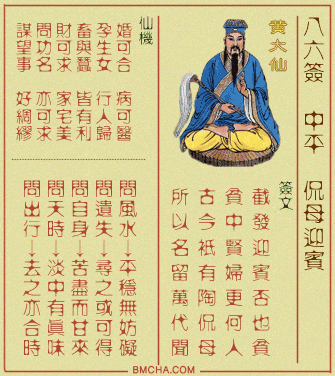 八六簽 中平 侃母迎賓
黃大仙
簽文
截發迎賓否也貧
貧中賢婦更何人
古今祇有陶侃母
所以名留萬代聞
仙機
婚可合 病可醫
孕生女 行人歸
畜與蠶 皆有利
財可求 家宅美
問功名 亦可求
謀望事 好綢繆
問風水→平穩無妨礙
問遺失→尋之或可得
問自身→苦盡而甘來
問天時→淡中有眞味
問出行→去之亦合時
BMCHA.COM